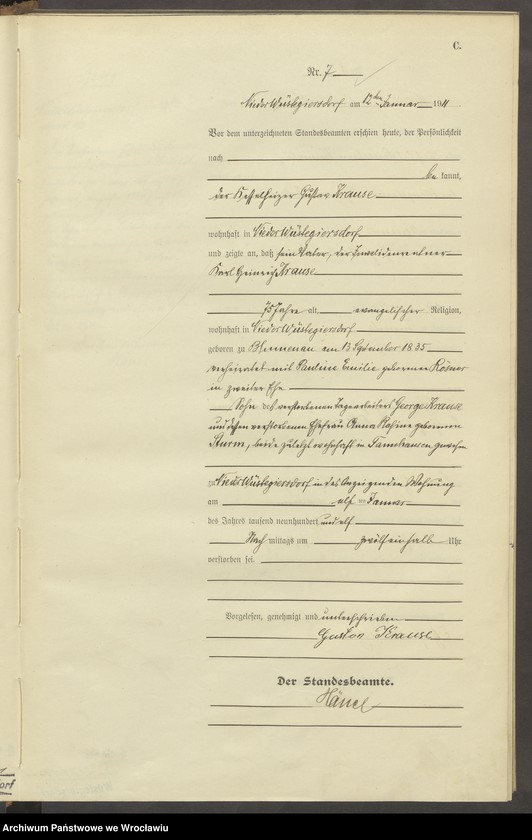 C.
Nr. 7
Nieder Wüstegiersdorf am 12ten Januar 1911
Vor dem unterzeichneten Standesbeamten erschien heute, der Persönlichkeit
nach
be kannt,
der Kesselheizer Gustav Krause
wohnhaft in Nieder Wüstegiersdorf
und zeigte an, daß sein Vater, der Invalidenrentner
Karl Heinrich Krause
75 Jahre alt, evangelischer Religion,
wohnhaft in Nieder Wüstegiersdorf
geboren zu Blumenau am 13 September 1835
verheiratet mit Pauline Emilie geborenen Rösner
in zweiter Ehe
Sohn des verstorbenen Tagearbeiters George Krause
und dessen verstorbenen Ehefrau Anna Rosine geborenen
Sturm, beide zuletzt wohnhaft in Tannhausen gewesen
zu Nieder Wüstegiersdorf in des Anzeigenden Wohnung
am elf ten Januar
des Jahres tausend neunhundert und elf
Nach mittags um zwölfeinhalb Uhr
verstorben sei.
Vorgelesen, genehmigt und unterschrieben
Gustav Krause
Der Standesbeamte.
Hänel
Archiwum Państwowe we Wrocławiu